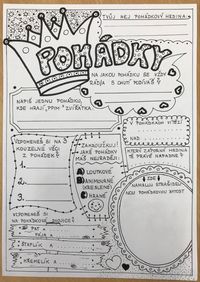 TVŮJ NEJ POHÁDKOVÝ HRDINA:
POHÁDKY
NA JAKOU POHÁDKU SE VŽDY
RÁD/A S CHUTÍ PODÍVÁŠ?
NAPIŠ JEDNU POHÁDKU,
KDE HRAJÍ PRIM ZVÍŘÁTKA
VZPOMENEŠ SI NA 3
KOUZELNÉ VĚCI
Z POHÁDEK?
1.
2.
3.
ZAKROUŽKUJ,
JAKÉ POHÁDKY
MÁŠ NEJRADĚJI:
A LOUTKOVÉ
B ANIMOVANÉ
(KRESLENÉ)
C HRANÉ
V POHÁDKÁCH VÍTĚZÍ:
NAD
KTERÝ ZÁPORNÝ HRDINA
TĚ PRÁVĚ NAPADNE?
ZDE
NAMALUJ STRAŠIDELNOU
POHÁDKOVOU BYTOST
VZPOMENEŠ SI
NA POHÁDKOVÉ DVOJICE?
PAT A
MÁJA A
ŠTAFLÍK A
KŘEMÍLEK A